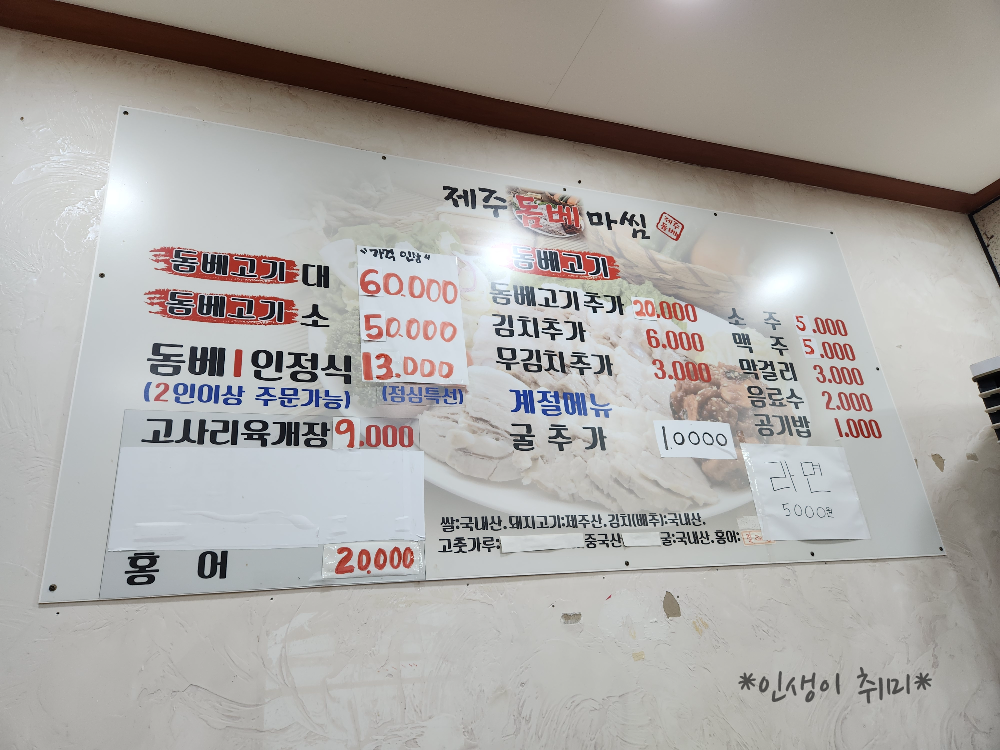 제주 돔베 마씸
"가격 인상"
돔베고기 대 60.000
돔베고기 소 50.000
돔베 1인정식 13.000
(2인이상 주문가능) (점심특선)
고사리육개장 9.000
홍 어 20.000
돔베고기
돔베고기추가 20.000
김치추가 6.000
무김치추가 3.000
계절메뉴
굴 추 가 10000
소 주 5.000
맥 주 5.000
막걸리 3.000
음료수 2.000
공기밥 1.000
라면
5000원
쌀:국내산.돼지고기:제주산.김치(배추):국내산.
고춧가루: 중국산 굴:국내산.홍어:
*인생이 취미*